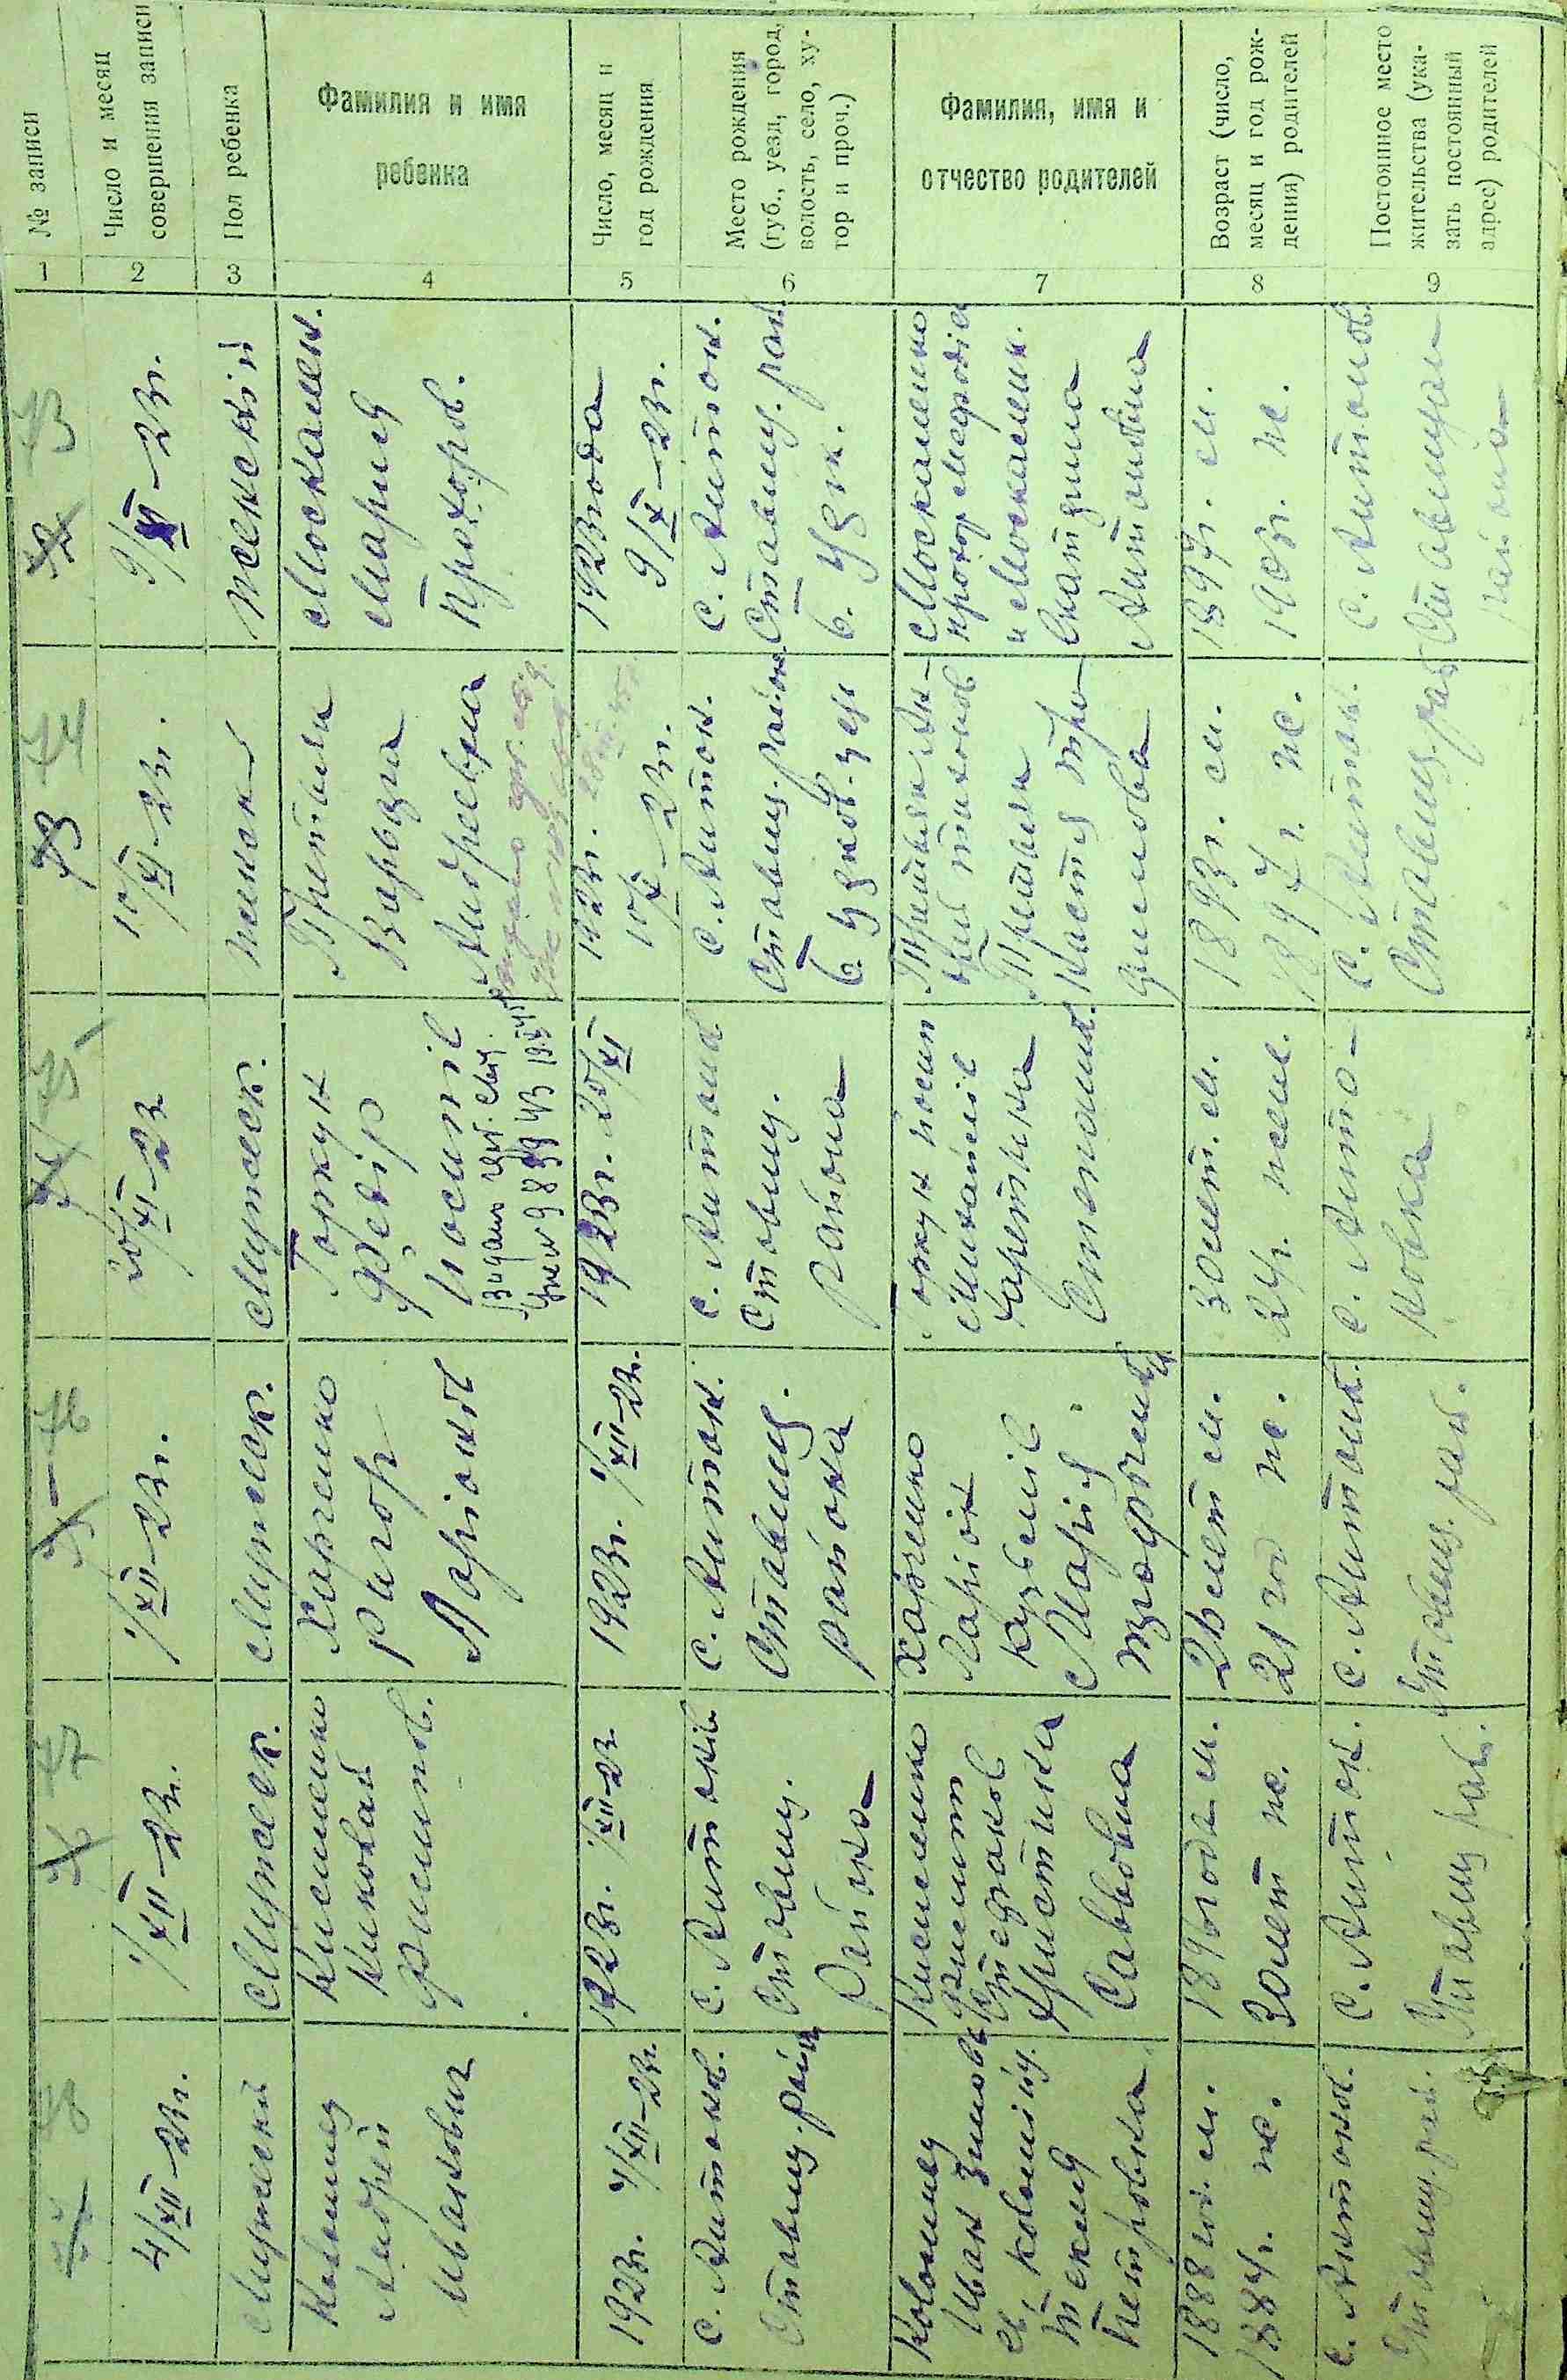 № записи
Число и месяц
совершения записи
Пол ребенка
Фамилия и имя
ребенка
Число, месяц и
год рождения
Место рождения
(губ., уезд, город,
волость, село, ху-
тор и проч.)
Фамилия, имя и
отчество родителей
Возраст (число,
месяц и год рож-
дения) родителей
Постоянное место
жительства (ука-
зать постоянный
адрес) родителей
1
2
3
4
5
6
7
8
9
73
9/XI—23г.
Женский
Москален.
Мария
Прохоров.
1923 года
9/X—23г.
с. Антон.
Ставищ. рай.
б. У
Москаленко
Прохор Мефодіев
и Москаленк.
Екатерина
Антоновна
1897г. м.
1903г. ж.
с. Антонов.
Ставищан
района
73 74
10/XI—23г.
женск
Третьяк
Варвара
Андреевна
1923г.
10/X—23г.
с. Антон.
Ставищ. район
б.
Третьяк Ан-
дрей Тихонов
Третьяк
Настя Тро-
фимовна
1893г. м.
1897г. ж.
с. Антон.
Ставищ. рай
74 75
20/XI—23
Мужеск.
Торкун
Федір
Йосипів
1923г. 20/XI
с. Антонів
Ставищ.
района
Торкун Йосип
Михайлів
Харетина
Степанив.
30 лет. м.
24г. жен.
с. Анто-
новка
75 76
1/XII—23г.
Мужеск.
Харченко
Ригор
Ларіонів
1923г. 1/XII—23г.
с. Антон.
Ставищ.
района
Харченко
Ларіон
Кузьмів
Марія
26 лет м.
21 год ж.
с. Антонів.
Ставищ. рай.
76 77
1/XII—23г.
Мужеск.
Кисиленко
Николай
Филипов.
1923г. 1/XII—23
с. Антонів.
Ставищ.
района
Кисиленко
Филипп
Степанов
Христина
Саввовна
1896 года м.
30 лет ж.
с. Антон.
Ставищ рай.
77 78
4/XII—23г.
Мужеский
Коломиец
Андрей
Иванович
1923г. 4/XII—23г.
с. Антонов.
Ставищ. район
Коломиец
Иван Зинов
ев, Коломійц.
Текля
Петровна
1888 год м.
1884г. ж.
с. Антонов.
Ставищ. рай.